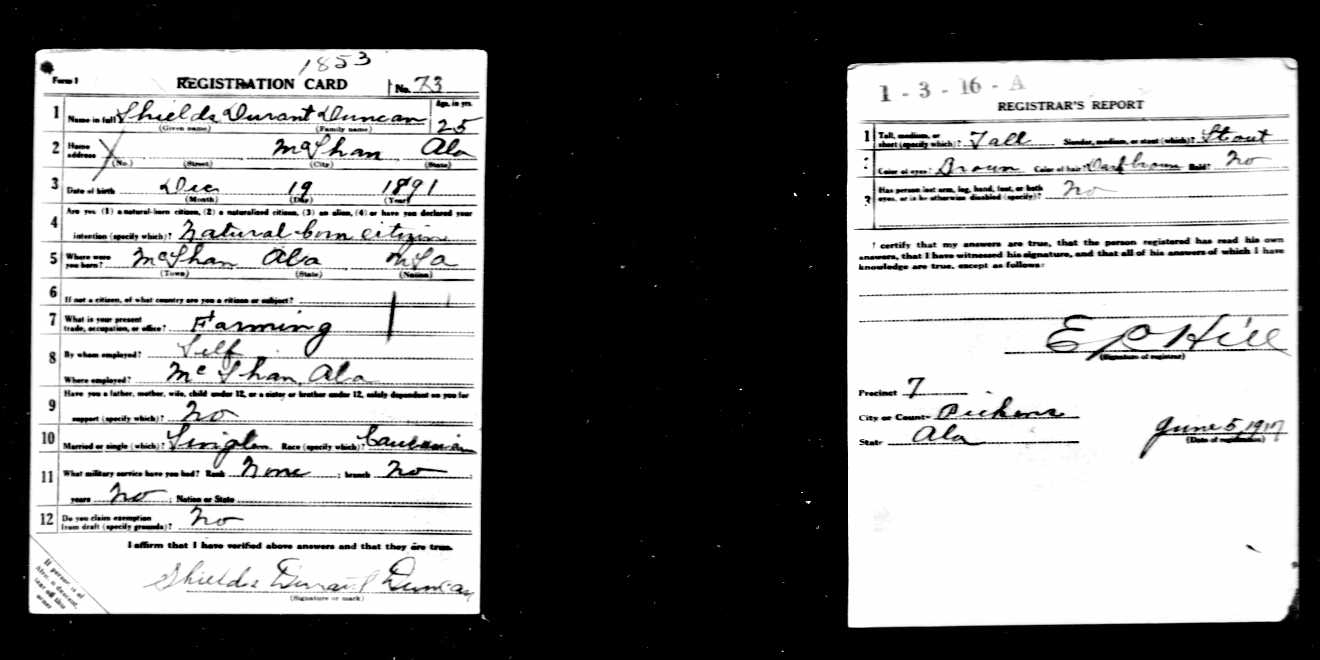 1853
Form 1 REGISTRATION CARD No. 73
1 Name in full Shields Durant Duncan Age, in yrs. 25
(Given name) (Family name)
2 Home address McShan Ala
(No.) (Street) (City) (State)
3 Date of birth Dec 19 1891
(Month) (Day) (Year)
4 Are you (1) a natural-born citizen, (2) a naturalized citizen, (3) an alien, (4) or have you declared your
intention (specify which)? Natural born citizen
5 Where were you born? McShan Ala USa
(Town) (State) (Nation)
6 If not a citizen, of what country are you a citizen or subject?
7 What is your present trade, occupation, or office? Farming
8 By whom employed? Self
Where employed? McShan, Ala
9 Have you a father, mother, wife, child under 12, or a sister or brother under 12, solely dependent on you for
support (specify which)? No
10 Married or single (which)? Single Race (specify which)? Caucasian
11 What military service have you had? Rank None ; branch No ;
years No ; Nation or State
12 Do you claim exemption from draft (specify grounds)? No
I affirm that I have verified above answers and that they are true.
Shields Durant Duncan
(Signature or mark)
If person is of
African descent,
tear off this
corner
1 - 3 - 16 - A
REGISTRAR'S REPORT
1 Tall, medium, or short (specify which)? Tall Slender, medium, or stout (which)? Stout
2 Color of eyes? Brown Color of hair? Dark brown Bald? No
3 Has person lost arm, leg, hand, foot, or both eyes, or is he otherwise disabled (specify)? No
I certify that my answers are true, that the person registered has read his own
answers, that I have witnessed his signature, and that all of his answers of which I have
knowledge are true, except as follows:
E P Hill
(Signature of registrar)
Precinct 7
City or County Pickens
State Ala
June 5, 1917
(Date of registration)